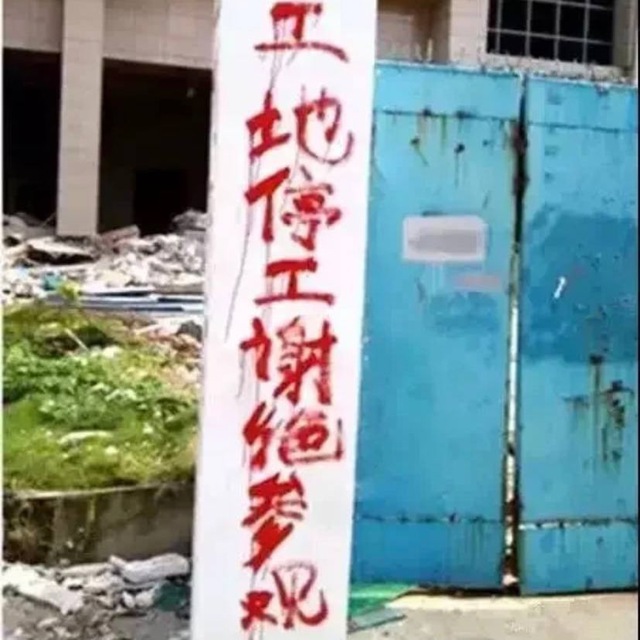 工地停工谢绝参观